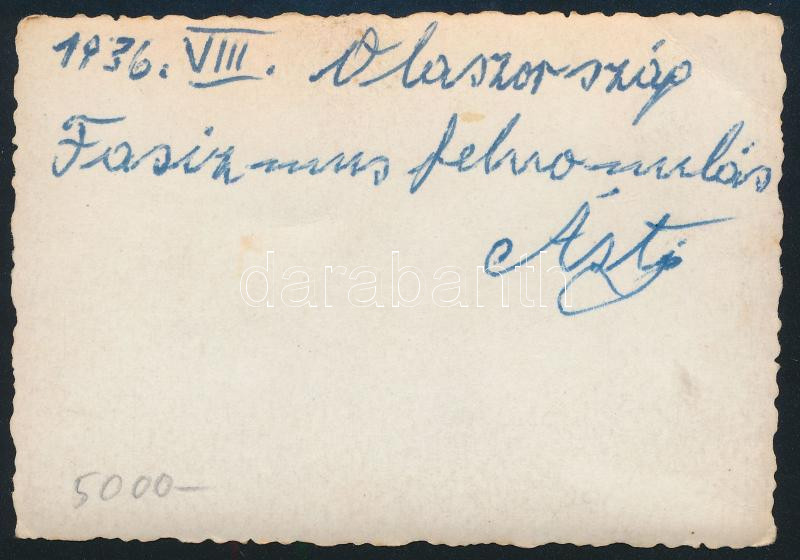 1936. VIII. Olaszország
Fasizmus felvonulás
Ásti
darabanth
5000-